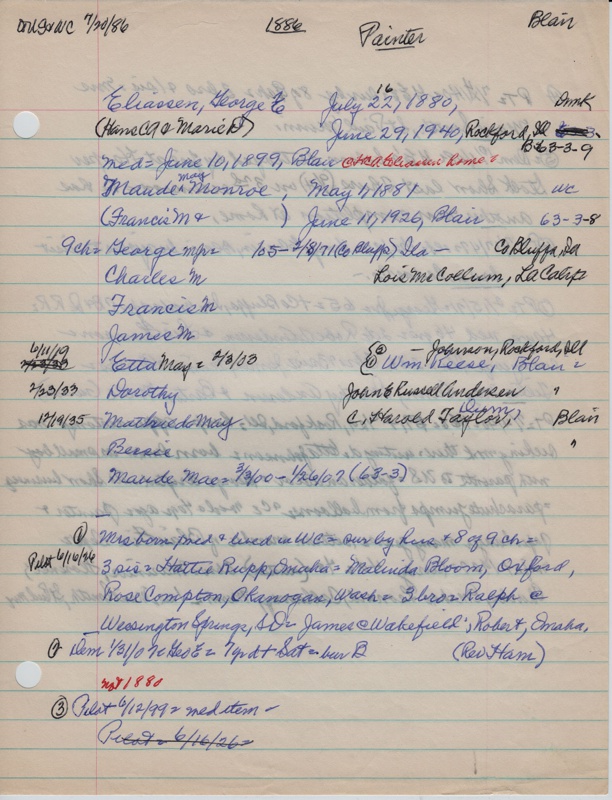 7/20/86 1886 Painter Blair
16
Eliassen, George E July 22, 1880, Dmk
(Hans CA & Marie D) June 29, 1940, Rockford, Ill
63-3-9
med = June 10, 1899, Blair
may
Maude Monroe, May 1, 1881 WC
(Francis M & ) June 11, 1926, Blair 63-3-8
9 ch = George mpr = 105 - 2/8/71 (Co Bluffs) Ila - Co Bluffs, Ia
Charles M Lois McCollum, La Calif
Francis M
James M
6/11/19 - Johnson, Rockford, Ill
Etta May = 2/3/03 Wm Reese, Blair =
2/23/33 Dorothy John E Russell Andersen "
12/9/35 Mathieda May C. Harold Taylor, Blair
Bessie "
Maude Mae = 3/3/00 - 1/26/07 (63-3)
① Mrs born med & lived in WC = sur by hus & 8 of 9 ch =
Pilot 6/16/26 3 sis = Hattie Rupp, Omaha = Malinda Bloom, Oxford,
Rose Compton, Okanogan, Wash = 3 bro = Ralph @
Wessington Springs, SD = James @ Wakefield, Robert, Omaha,
② Dem 1/31/07 = Geo E = 7 yr dt = bur B (Rev Ham)
not 1880
③ Pilot 6/12/99 = med item =
Pilot = 6/16/26 =